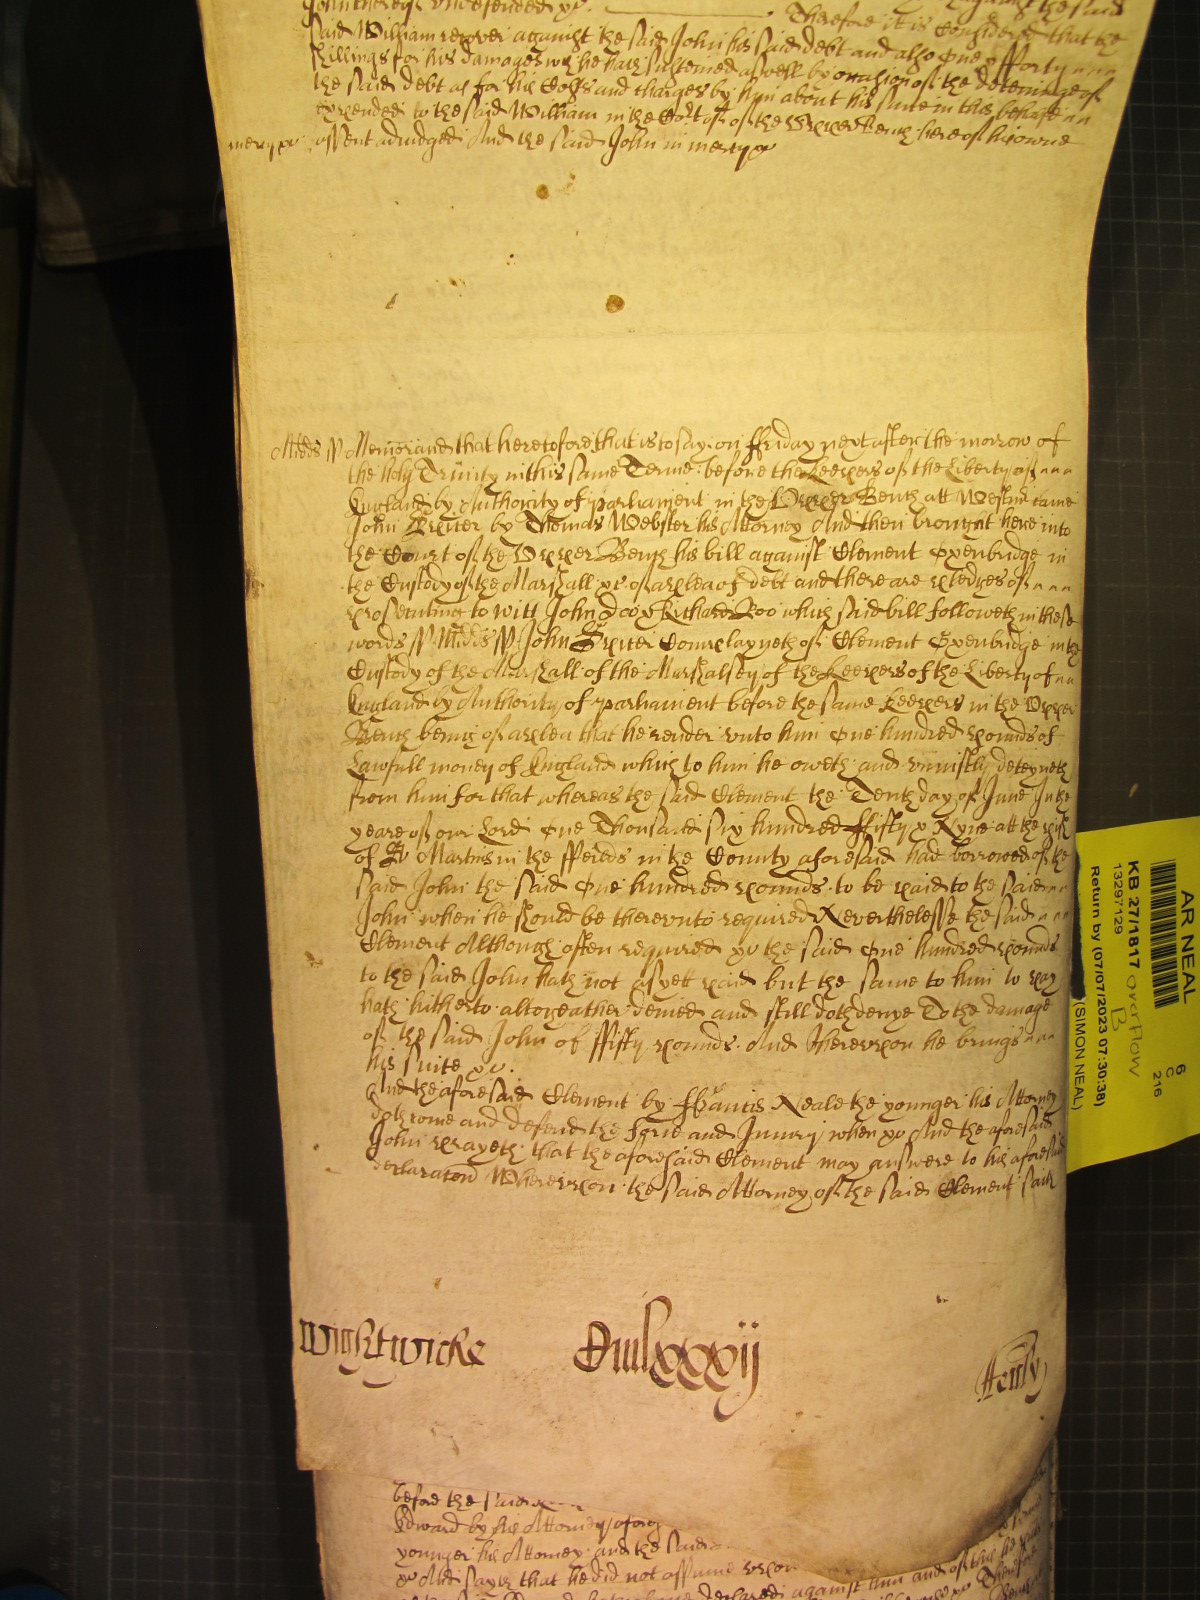 John thereof vndefended &c. Therefore it is Considered that the
said William recover against the said John his said debt and also One & fforty
shillings for his damages wch he hath susteined aswell by occasion of the deteining of
the said debt as for his Costs and charges by him about his suite in this behalfe
expended to the said William in the Cort of the Upper Bench here of his owne
mercy &c assent adiudged And the said John in mercy &c
Midds ss Memorand that heretofore that is to say on ffriday next after the morrow of
the holy Trinity in this same Terme before the Keepers of the Liberty of
England by Authority of parliament in the Upper Bench att Westmr came
John by Thomas Webster his Attorney And then brought here into
the Court of the Upper Bench his bill against Clement Oxenbridge in
the Custody of the Marshall &c. of a plea of debt and there are pledges of
prosecuting to witt John Doo & Richard Roo which said bill followeth in these
words ss Midds ss John Complayneth of Clement Oxenbridge in the
Custody of the Marshall of the Marshalsey of the Keepers of the Liberty of
England by Authority of parliament before the same Keepers in the Upper
Bench being of a plea that he render vnto him One hundred pounds of
Lawfull money of England which to him he oweth and vniustly deteyneth
from him for that whereas the said Clement the Tenth day of June In the
yeare of our Lord One Thousand six hundred ffifty & Nyne att the pish
of St Martins in the ffeilds in the County aforesaid had borrowed of the
said John the said One hundred pounds to be paid to the said
John when he should be therevnto required Neverthelesse the said
Clement Although often required &c the said One hundred pounds
to the said John hath not as yett paid but the same to him to pay
hath hitherto altogeather denied and still doth denye To the damage
of the said John of ffifty pounds. And Therevpon he brings
his suite &c.
And the aforesaid Clement by ffrancis Neale the younger his Attorney
doth come and defend the force and Iniury when &c And the aforesaid
John prayeth that the aforesaid Clement may answere to his aforesaid
declaracon Wherevpon the said Attorney of the said Clement saith
Wightwicke
Henly
before the said
Edward by his Attorney
younger his Attorney and the said
&c And sayth that he did not assume vpon
declared against him and of this he
AR NEAL
KB 27/1817 overflow
B
13297129
Return by (07/07/2023 07:30:38)
(SIMON NEAL)
6
C
216